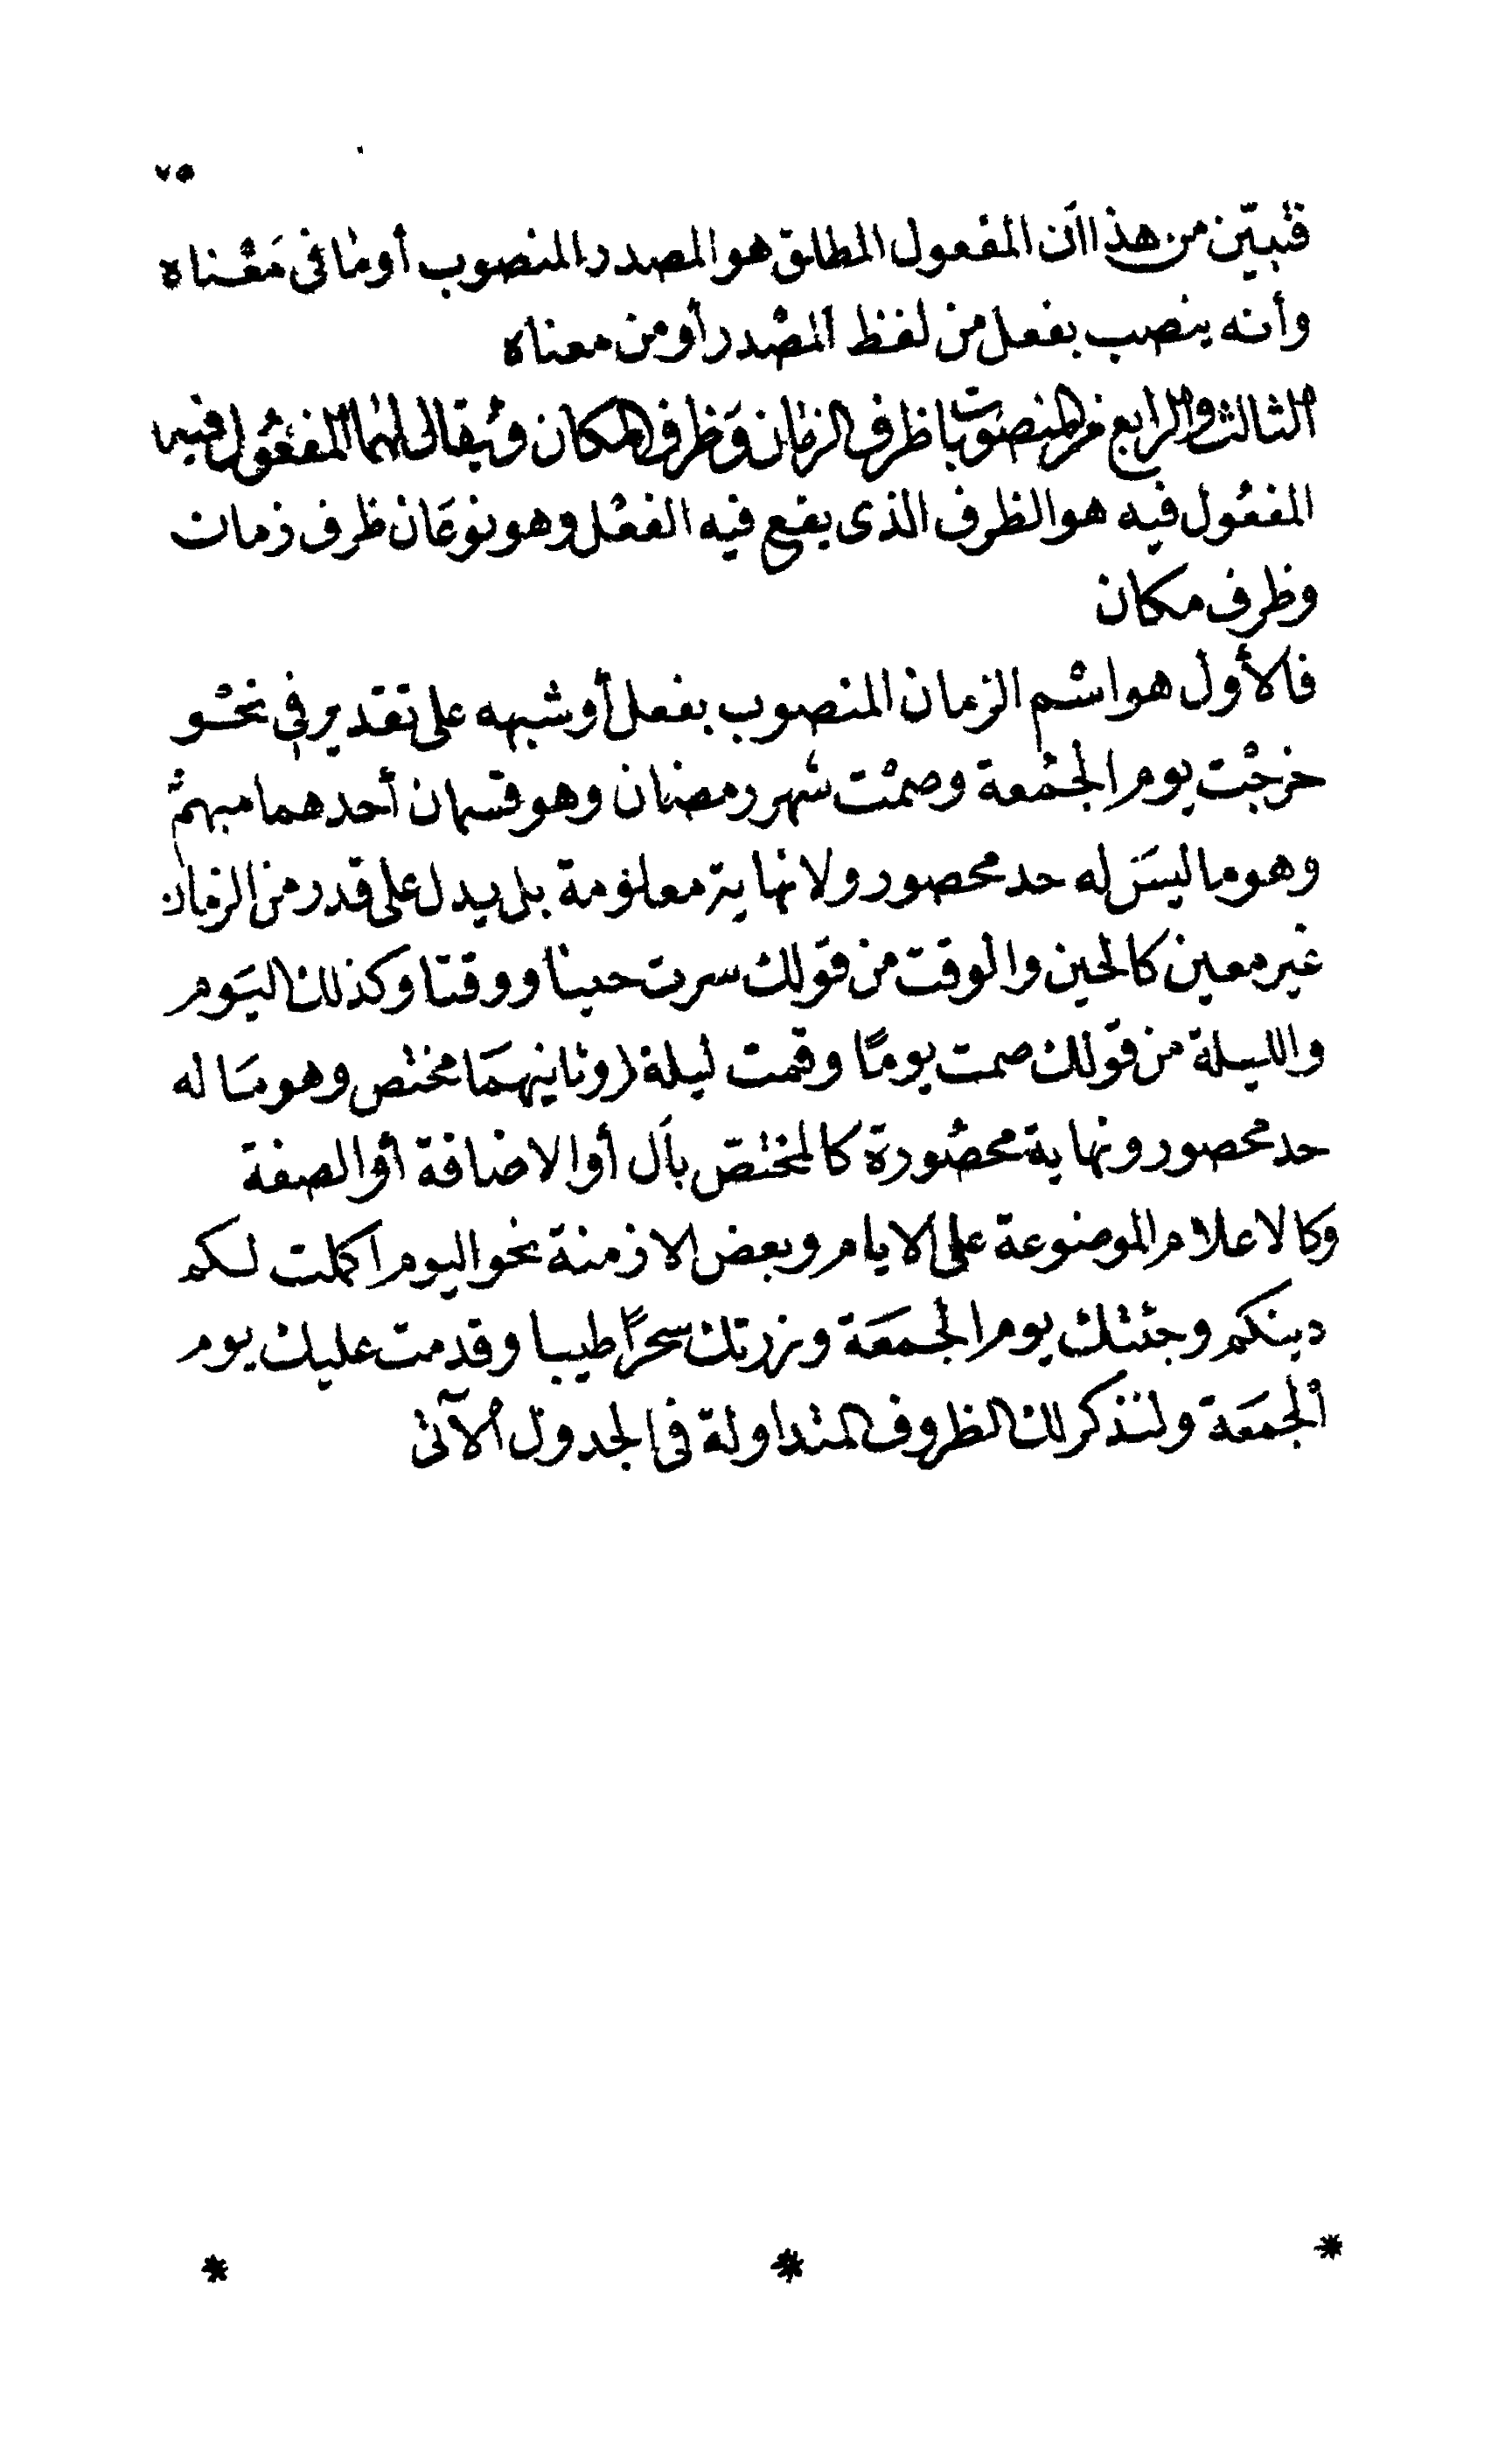 ٧٥
فتبيّن من هذا أن المفعول المطلق هو المصدر المنصوب أو ما في مَعْناه
وأنه ينصب بفعل من لفظ المصْدر أو من معناه
الثالث والرابع من المنصوبات ظرف الزمان وَظرف المكان وَيقال لهما المفعُول فيه
المفعُول فيه هو الظرف الذى يقع فيه الفعْل وهو نوعَان ظرف زمان
وظرف مكان
فالأول هو اسْم الزمان المنصوب بفعل أو شبهه على تقدير في نحْو
خرجْت يوم الجمْعة وصمْت شهر رمضان وهو قسمان أحدهما مبهمْ
وهو ما ليسَ له حد محصور ولا نهاية معلومة بل يدل على قدر من الزمان
غير معين كالحين والوقت من قولك سرت حينا ووقتا وكذلك اليَوم
والليلة من قولك صمت يومًا وقمت ليلة (وثانيهمَا مختص وهو مَا له
حد محصور ونهاية محصُورة كالمختصّ بأل أو الاضافة أو الصفة
وكالاعلام الموضوعة على الايام وبعض الازمنة نحو اليوم اكملت لكم
دينكم وجئتك يوم الجمَعَة وزرتك سحرًا طيبا وقدمت عليك يوم
الجمَعَة ولنذكر لك الظروف المتداولة في الجدول الآتى
* * *